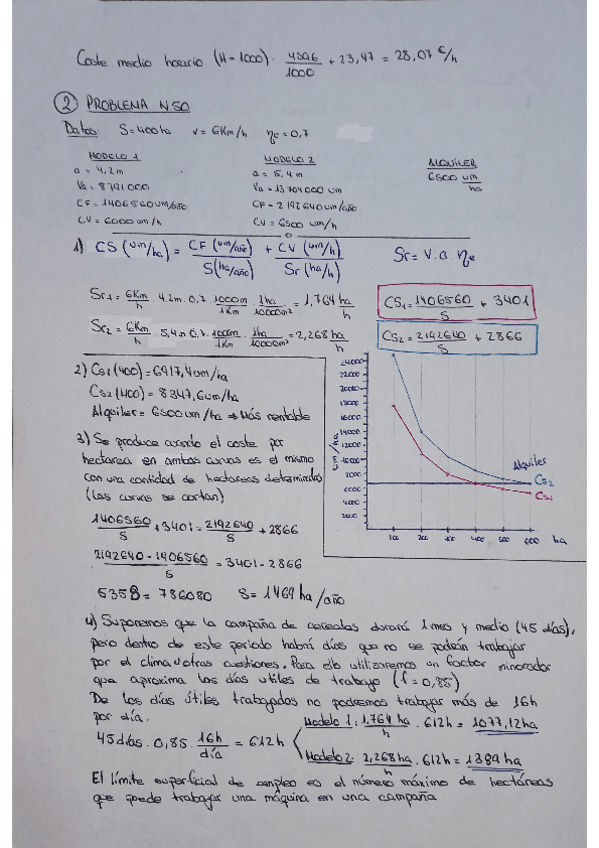 Coste medio horario (H=1000). 4596/1000 + 23,47 = 28,07 €/h
② PROBLEMA N50
Datos: S=400ha v=6Km/h ηe=0,7
MODELO 1
a = 4,2m
Va = 8791000
CF = 1406560um/año
CV = 6000 um/h
MODELO 2
a = 5,4 m
Va = 13704000 um
CF = 2192640um/año
CV = 6500 um/h
ALQUILER
6500 um/ha
1) CS (um/ha) = CF (um/año)/S(ha/año) + CV (um/h)/Sr (ha/h) Sr = v.a.ηe
Sr1 = 6Km/h . 4,2m. 0,7. 1000m/1Km . 1ha/10000m² = 1,764 ha/h
Sr2 = 6Km/h . 5,4m. 0,7. 1000m/1Km . 1ha/10000m² = 2,268 ha/h
CS1 = 1406560/S + 3401
CS2 = 2192640/S + 2866
2) Cs1 (400) = 6917,4um/ha
Cs2 (400) = 8347,6um/ha
Alquiler = 6500 um/ha ⇒ Más rentable
3) Se produce cuando el coste por
hectarea en ambas curvas es el mismo
con una cantidad de hectareas determinadas
(Las curvas se cortan)
1406560/S + 3401 = 2192640/S + 2866
2192640 - 1406560/S = 3401 - 2866
535S = 786080 S = 1469 ha/año
um/ha
24000
22000
20000
18000
16000
14000
12000
10000
8000
6000
4000
2000
100 200 300 400 500 600 ha
Alquiler
Cs2
Cs1
4) Suponemos que la campaña de cereales durará 1 mes y medio (45 días),
pero dentro de este periodo habrá días que no se podrán trabajar
por el clima u otras cuestiones. Para ello utilizaremos un factor minorador
que aproxima los días utiles de trabajo (f = 0,85)
De los días útiles trabajados no podremos trabajar más de 16h
por día.
45días . 0,85 . 16h/día = 612h
Modelo 1: 1,764 ha/h . 612h = 1077,12ha
Modelo 2: 2,268 ha/h . 612h = 1389 ha
El límite superficial de empleo es el número máximo de hectáreas
que puede trabajar una máquina en una campaña